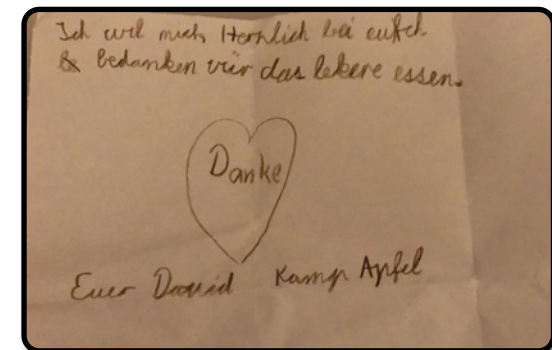 Ich wil mich Herzlich bei eutch
bedanken vür das lekere essen.
Danke
Euer David Kamp Apfel